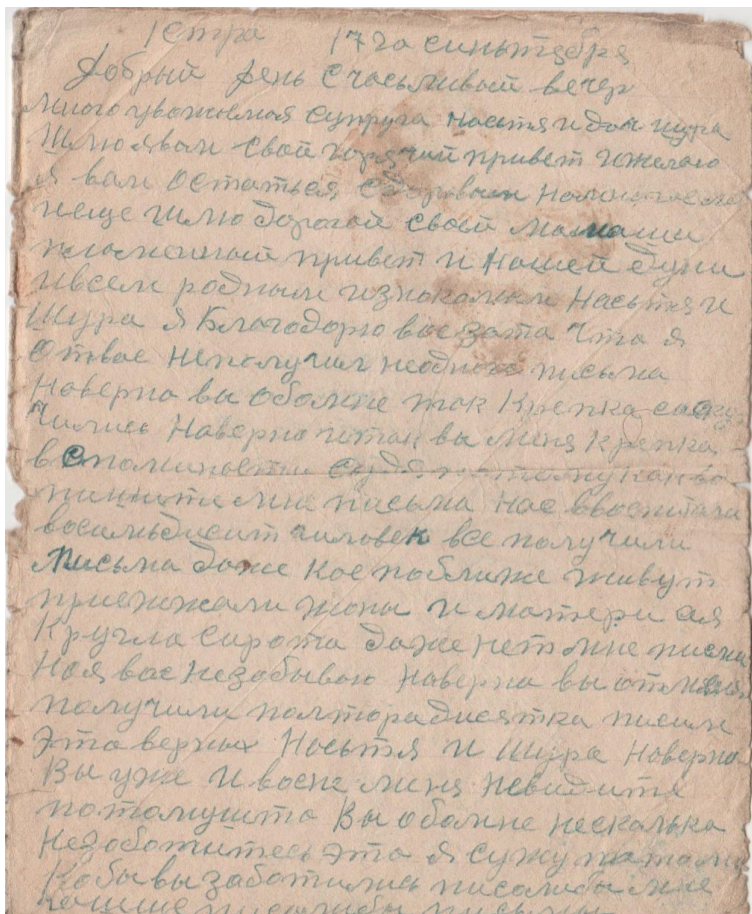 1 стра 17 го синьтебря
Добрый день счасьливай вечер
много уважымая супруга Насьтя и доч шура
Шлю я вам свой горячий привет и желаю
я вам остаться здоровым
и еще шлю дорогой своей мамаши
пламенный привет и нашей Дуни
и всем родным и знакомым Насьтя и
Шура я Благодорю вас зата что я
от вас неполучил неоднога письма
Наверна вы обомне так Крепка соску
чились Наверна и так вы меня крепка
вспоминаети судя потому как вы
пишити мне письма нас
восемьдисит чиловек все получили
письма даже кое поближе живут
приежжали жоны и матери а я
Кругла сирота даже нет мне письма
Но я вас незабываю наверна вы от меня
получили полтора дисятка писим
Эта верных Насьтя и Шура Наверна
Вы уже и восне миня невидите
потомушта Вы обомне несколька
незаботитесь эта я сужу потому
Кобы вы заботились писалибы мне